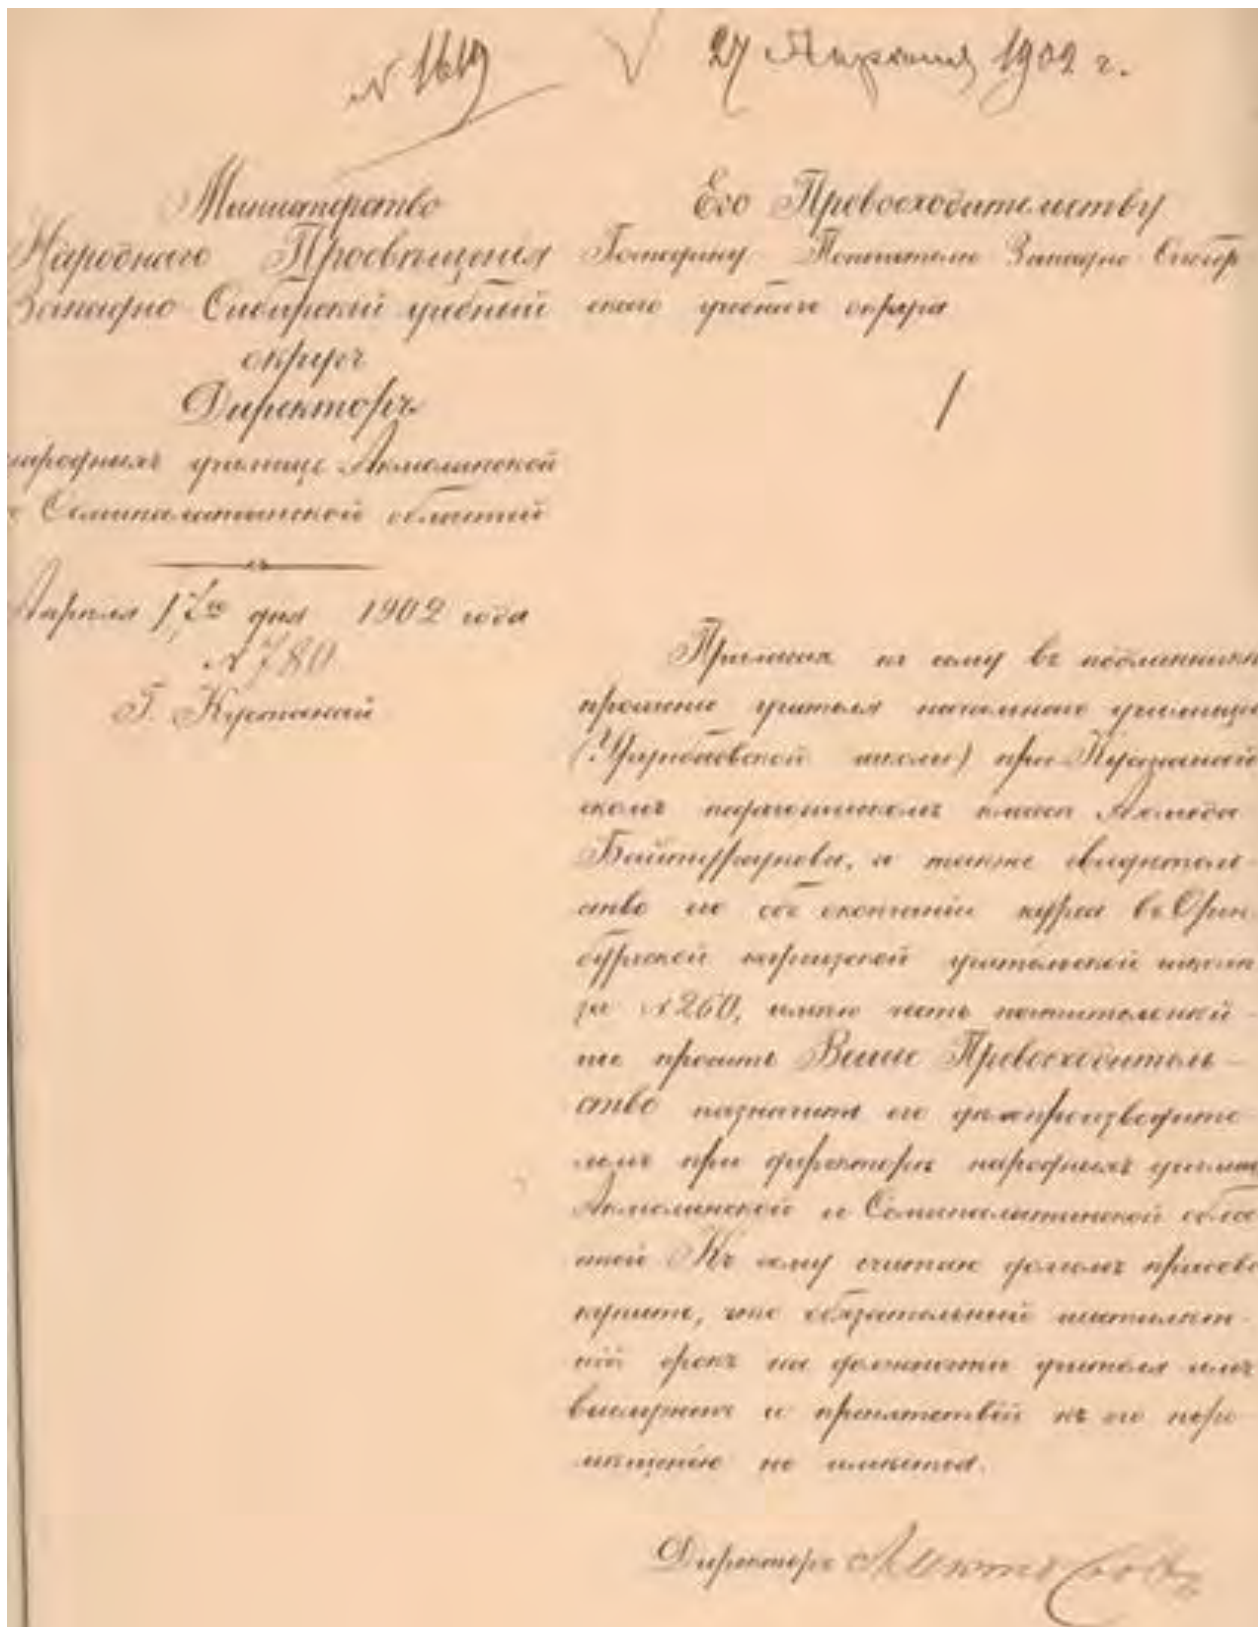 № 1619
27 Апреля 1902 г.
Министерство
Народнаго Просвѣщенія
Западно Сибирскій учебный
округъ
Директоръ
народныхъ училищъ Акмолинской
и Семипалатинской областей
Апреля 17го дня 1902 года
№ 780
Г. Кустанай
Его Превосходительству
Господину Попечителю Западно-Сибир
скаго учебнаго округа
Прилагая къ сему въ подлинникѣ
прошеніе учителя начальнаго училища
при Кустанай
скомъ педагогическомъ классѣ Ахмеда
Байтурсунова, а также свидѣтель
ство его объ окончаніи курса въ Орен
бургской киргизской учительской школѣ
за № 260, имѣю честь почтительнѣй-
ше просить Ваше Превосходитель-
ство назначить его дѣлопроизводите
лемъ при директорѣ народныхъ училищъ
Акмолинской и Семипалатинской облас
тей Къ сему считаю долгомъ присово
купить, что обязательный шестилѣт-
ній срокъ на должности учителя имъ
выслуженъ и препятствій къ его пере
мѣщенію не имѣется.
Директоръ